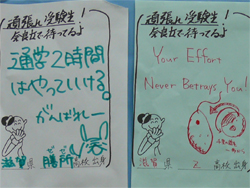 頑張れ受験生!
奈良女で待ってるよ
通学2時間
はやっていける。
がんばれー
滋賀県 膳所 高校出身
頑張れ受験生!
奈良女で待ってるよ
Your Effort
Never Betrays You!
滋賀県 Z 高校出身